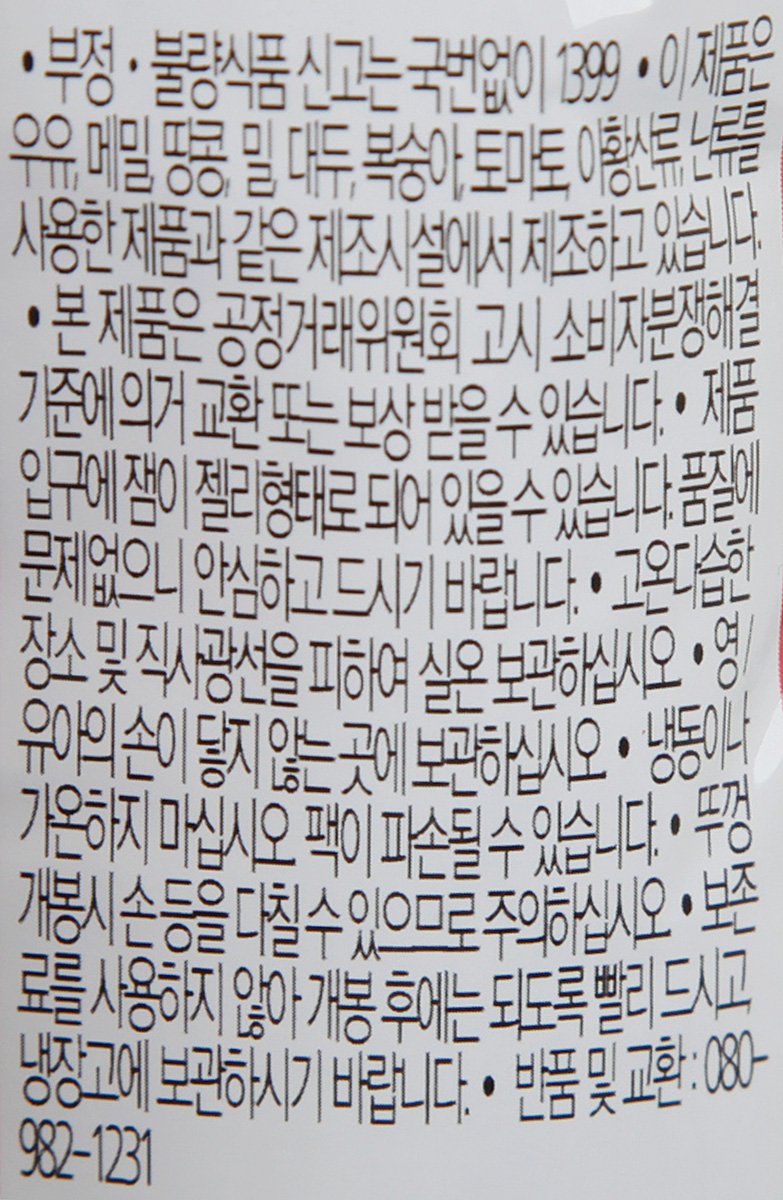 • 부정 • 불량식품 신고는 국번없이 1399 • 이 제품은
우유, 메밀, 땅콩, 밀, 대두, 복숭아, 토마토, 이황산류, 난류를
사용한 제품과 같은 제조시설에서 제조하고 있습니다.
• 본 제품은 공정거래위원회 고시 소비자분쟁해결
기준에 의거 교환 또는 보상 받을 수 있습니다. • 제품
입구에 잼이 젤리형태로 되어 있을 수 있습니다. 품질에
문제없으니 안심하고 드시기 바랍니다. • 고온다습한
장소 및 직사광선을 피하여 실온 보관하십시오 • 영/
유아의 손이 닿지 않는 곳에 보관하십시오 • 냉동이나
가온하지 마십시오 팩이 파손될 수 있습니다. • 뚜껑
개봉시 손 등을 다칠 수 있으므로 주의하십시오 • 보존
료를 사용하지 않아 개봉 후에는 되도록 빨리 드시고,
냉장고에 보관하시기 바랍니다. • 반품 및 교환 : 080-
982-1231